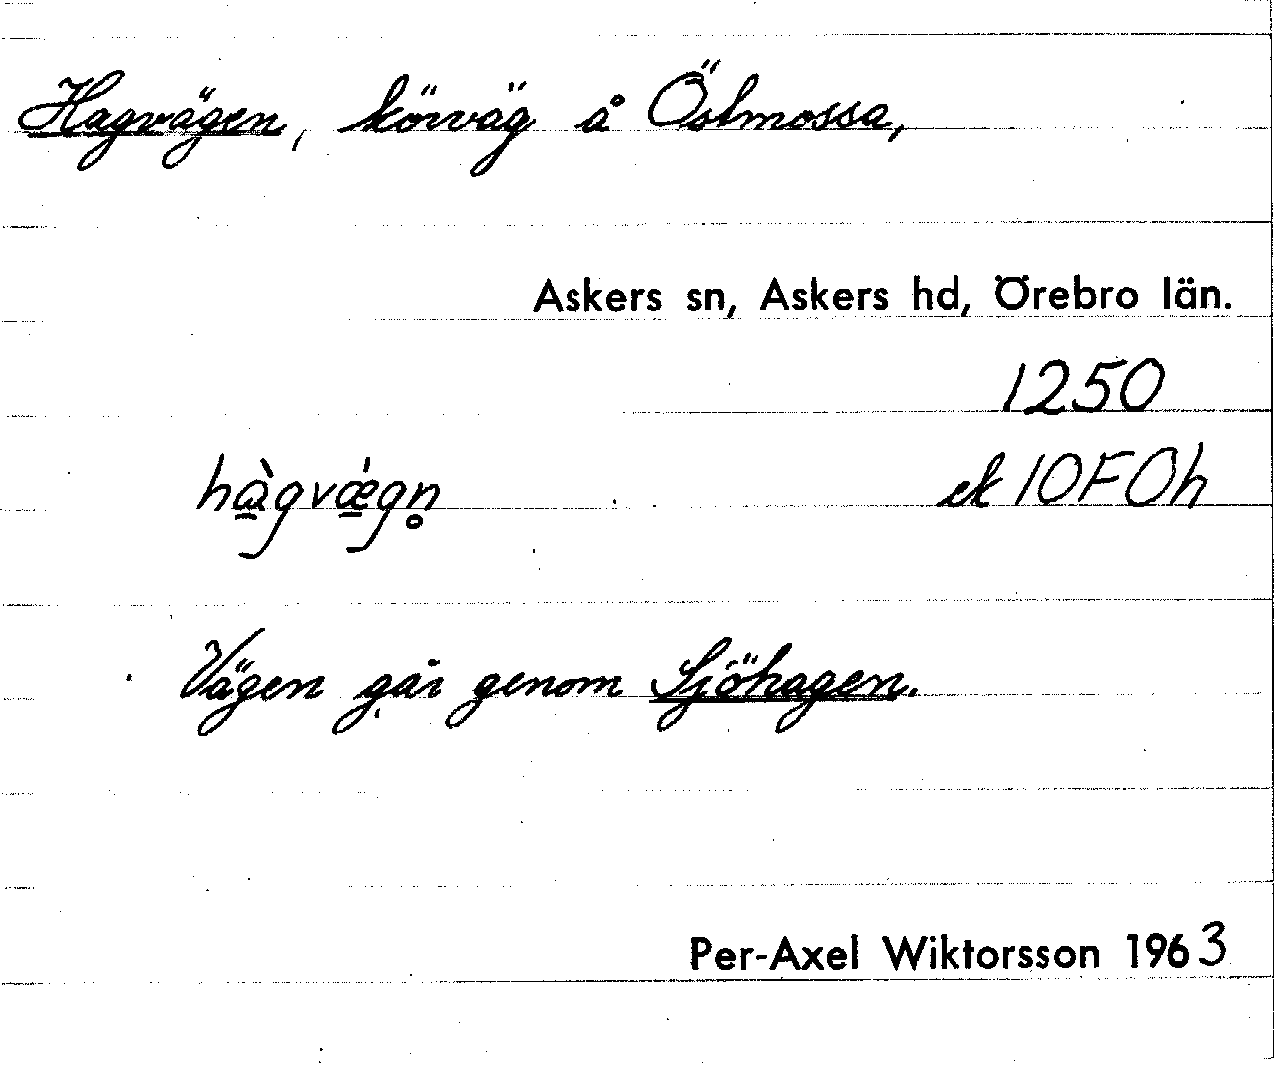 Hagvägen, körväg å Östmossa,
Askers sn, Askers hd, Örebro län.
1250
hàgvǽgn̥ ek 10F0h
Vägen går genom Sjöhagen.
Per-Axel Wiktorsson 1963